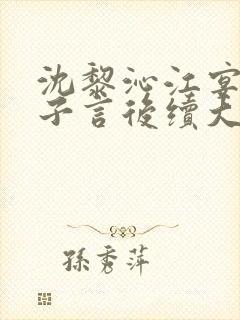 沈黎沁江宴
子言後續大
孫秀萍